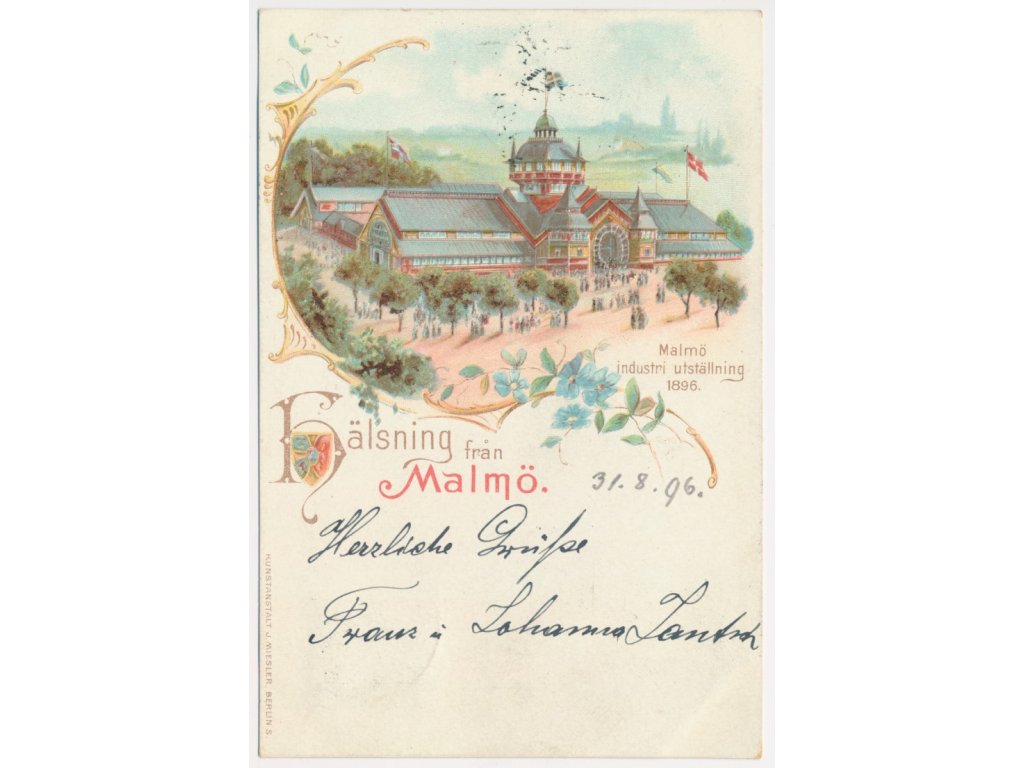 Malmö
industri utställning
1896.
Hälsning från
Malmö.
31.8.96.
Herzliche Grüße
Franz u Johanna
KUNSTANSTALT J. MIESLER, BERLIN S.